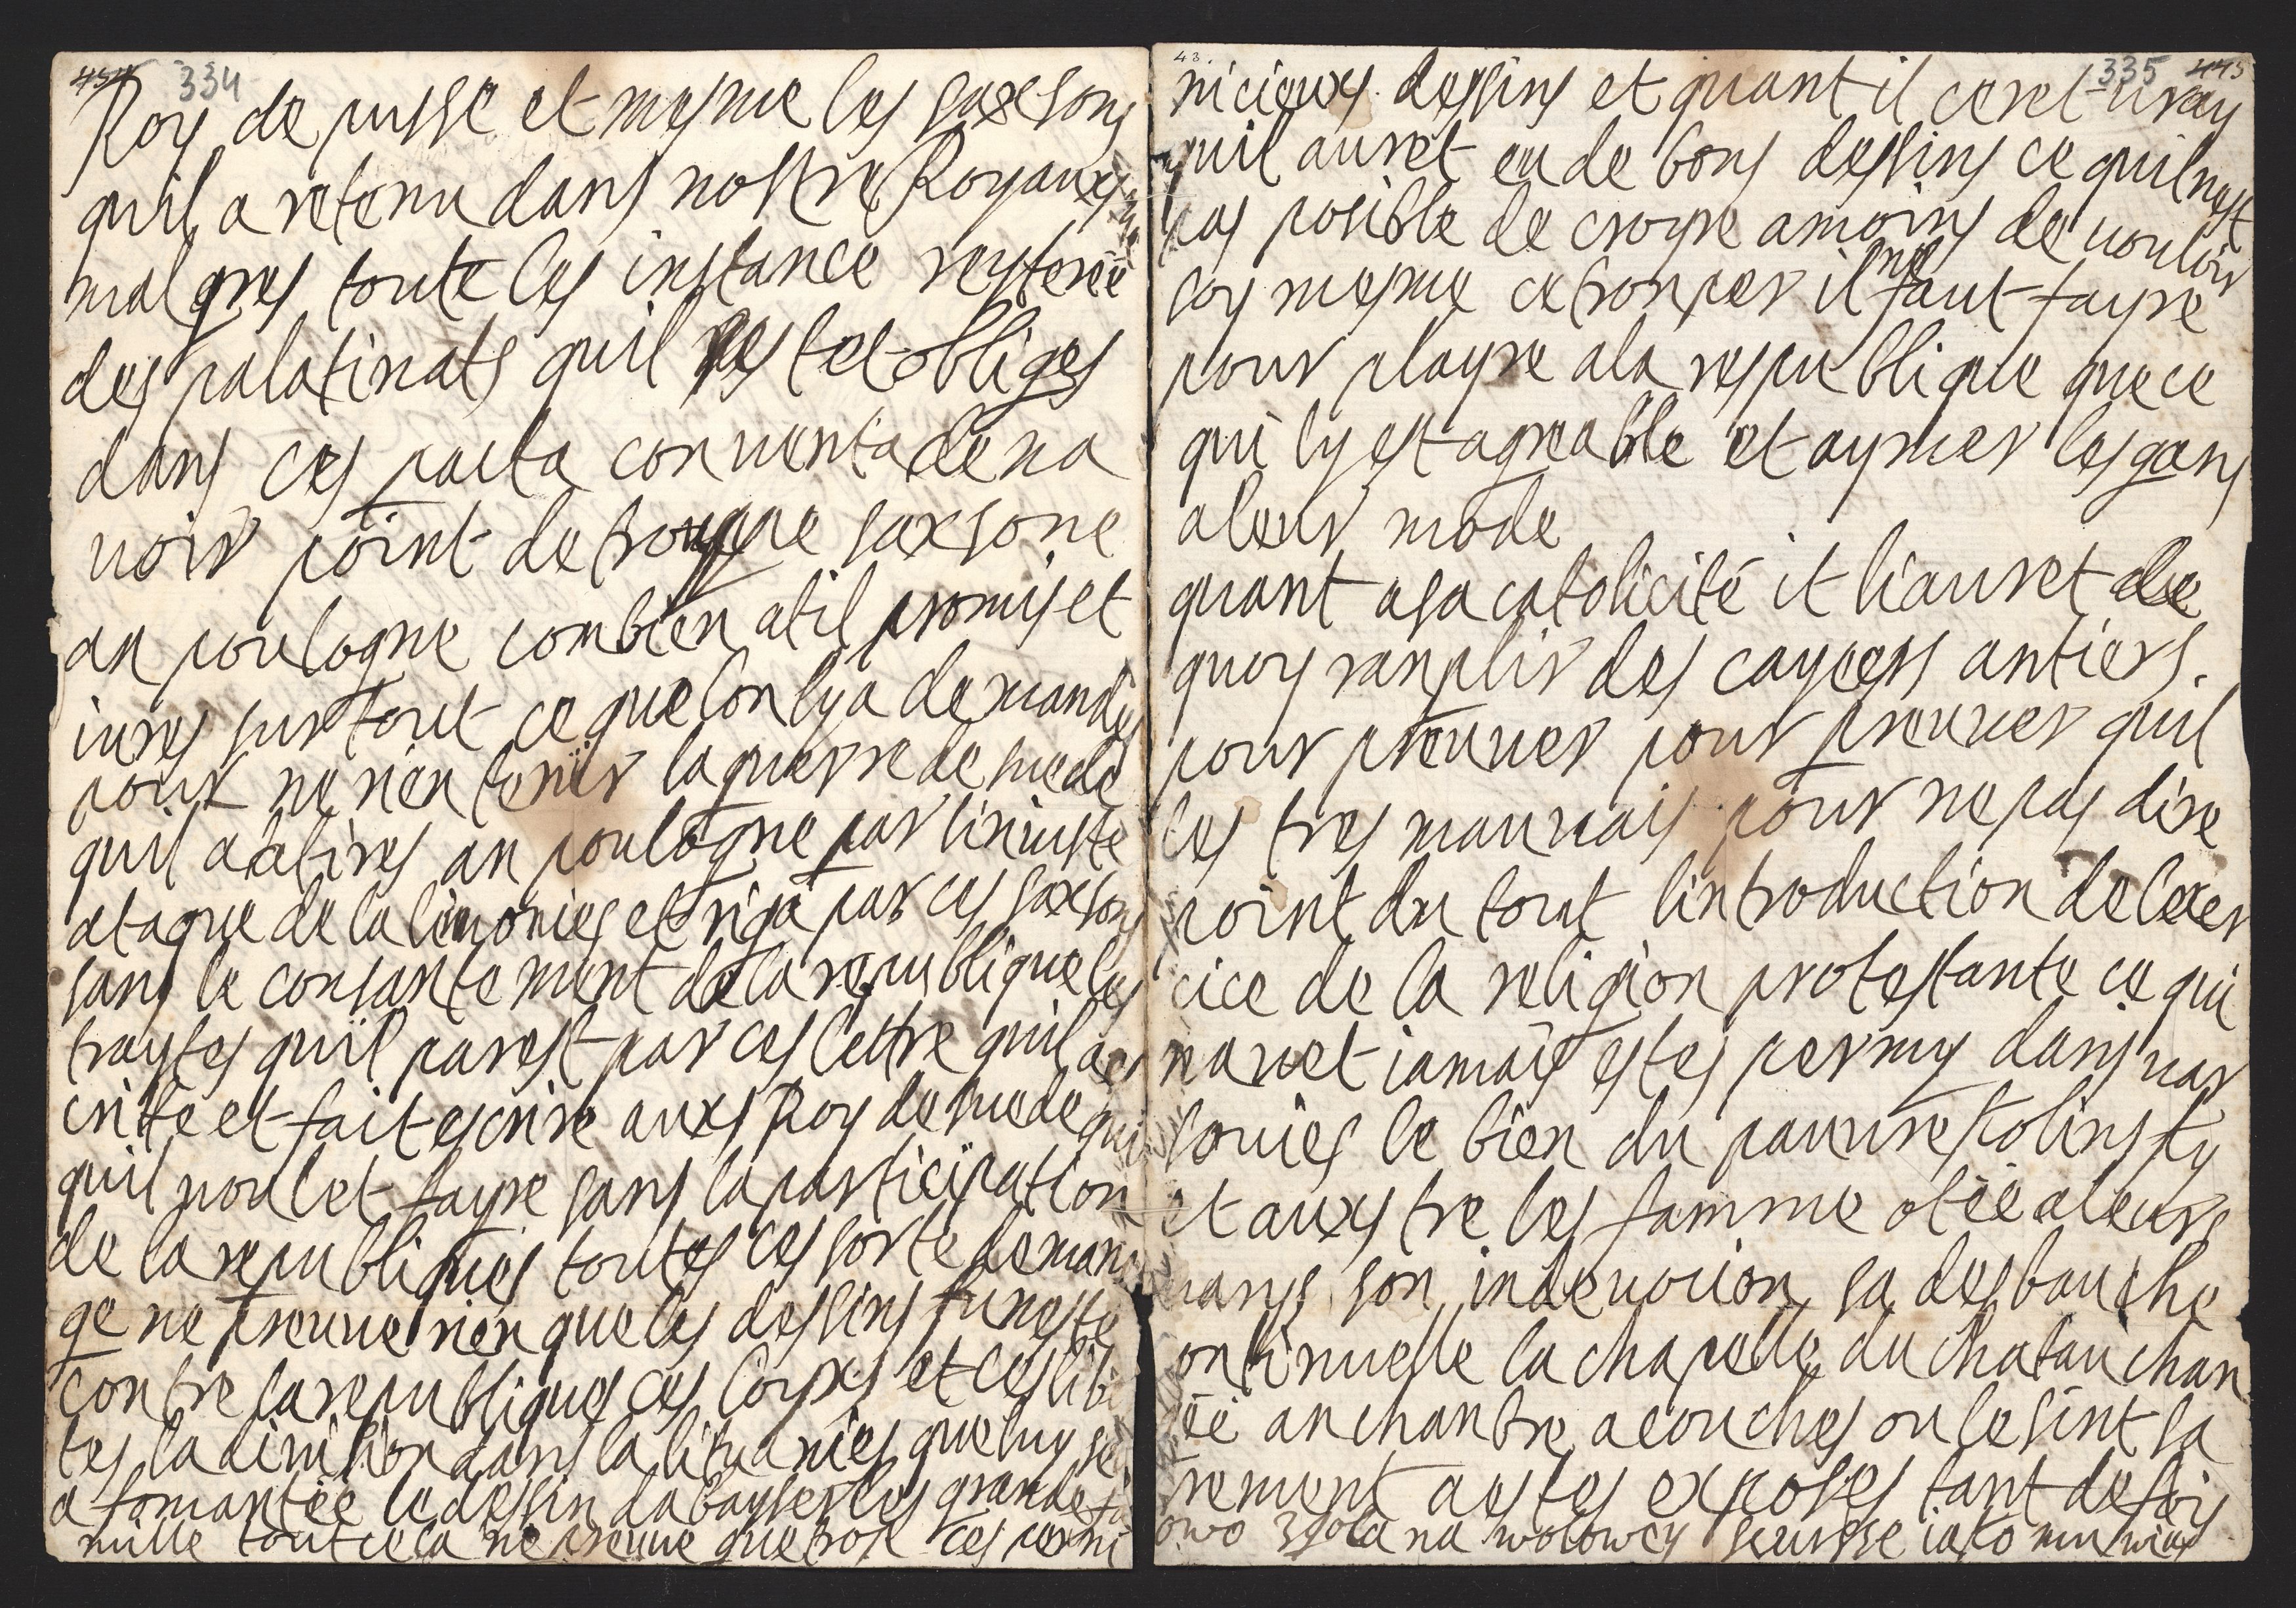 334
Roy de prusse et mesme les saxsons
quil a retenu dans nostre Royaux
malgres toute les instance reyterée
des palatinats quil sestet obliges
dans ces pacta conventa de na
voir point de trouppe saxsone
an poulogne combien atil promis et
iures sur tout ce que lon ly a demandes
pour ne rien tenir la guerre de suede
quil a atires an poulogne par liniuste
ataque de la livonies et riga par ces saxsons
sans le consantement de la republique les
traytes quil parest par ces lettre quil a es
crite et fait escrire auxs Roy de suede qui
quil voulet fayre sans la participation
de la republiques toutes ces sorte de man 
ge ne preuve rien que les dessins funeste
contre la republiques ces loyxs et ces libe
tes la division dans la lituanies que luy se
a fomantée le dessin dabaysser les grande fa
mille tout cela ne preuve que trop ces perni
43.
335 445
nicieuxs dessins et quant il ceret vray
quil auret eu de bons dessins ce quil nest
pas posible de croyre amoins de vouloir
soy mesme ce tromper il ne faut fayre
pour playre ala respublique que ce
qui ly est agreable et aymer les gans
aleur mode
quant asa catolicité it liauret de
quoy ranplir des cayers antiers.
pour preuver pour preuver quil
les tres mauvais pour ne pas dire
point du tout lintroduction de lexer
cice de la religion protestante ce qui
navet iamais estes permis dans var
sovies le bien du pauvre Kolinsky
et auxstre les famme otée aleurs
mans son indevocion sa desbauche
ontinuelle la chapelle du chatau chan
ée anchanbre acouches ou le sint sa
rement aestes exposes tant de fois
owo zgola na wolowey skurse iako mumiaz